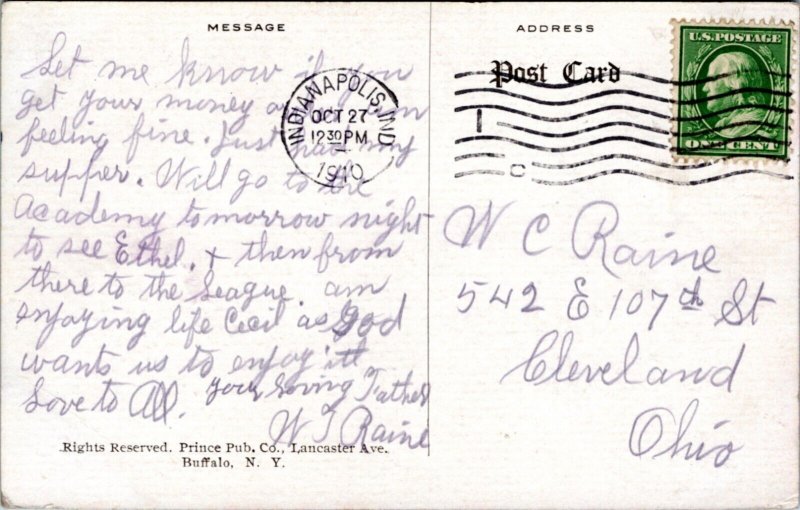 MESSAGE
Let me know if you
get your money and
feeling fine. Just had my
supper. Will go to the
Academy tomorrow night
to see Ethel. & then from
there to the League. am
enjoying life Cecil as God
wants us to enjoy itt
Love to All. Your Loving Father
W T Raine
Rights Reserved. Prince Pub. Co., Lancaster Ave.
Buffalo, N. Y.
INDIANAPOLIS, IND
OCT 27
1230 PM
1910
ADDRESS
Post Card
U.S. POSTAGE
ONE CENT
W C Raine
542 E 107th St
Cleveland
Ohio